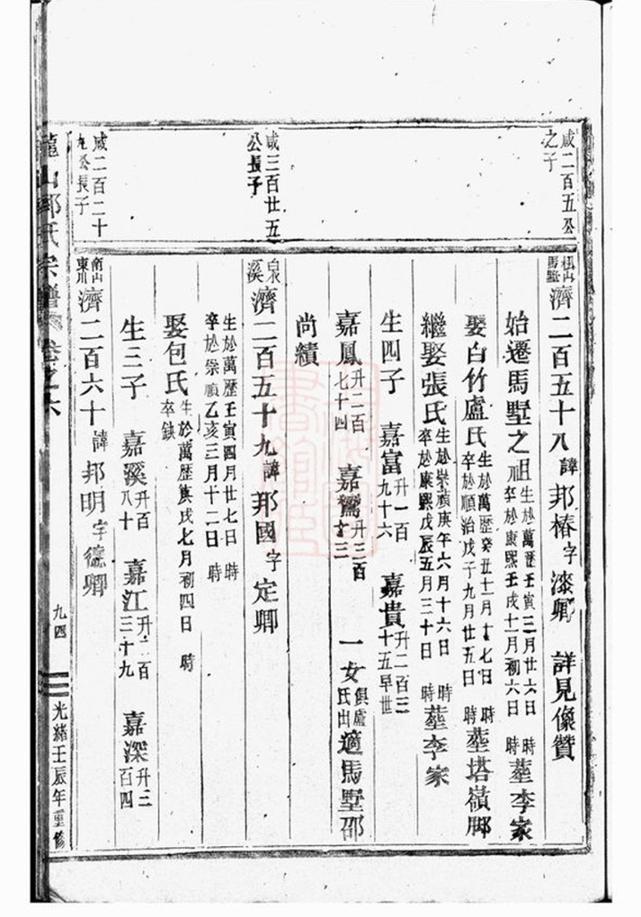 咸二百五公
之子
咸三百廿五
公長子
咸二百二十
九公長子
濟二百五十八諱邦椿字漆卿　詳見像贊
始遷馬墅之祖生於萬歷壬寅三月廿六日　時卒於康熙壬戌十一月初六日　時葬李家
娶白竹盧氏生於萬歷癸丑十一月十七日　時卒於順治戊子九月廿五日　時葬塔嶺脚
繼娶張氏生於崇禎庚午六月十六日　時卒於康熙戊辰五月三十日　時葬李家
生四子　嘉富升一百九十六　嘉貴升二百三十五早世
嘉鳳升二百七十四　嘉鸞升三百　一女俱盧氏出適馬墅邵
尚績
濟二百五十九諱邦國字定卿
生於萬歷壬寅四月廿七日　時
卒於崇禎乙亥三月十二日　時
娶包氏生於萬歷庚戌七月初四日　時卒缺
生三子　嘉溪升百八十　嘉江升二百三十九　嘉深升三百四
南山東川濟二百六十諱邦明字德卿
山 氏宗譜 卷之六
九四
光緒壬辰年重修